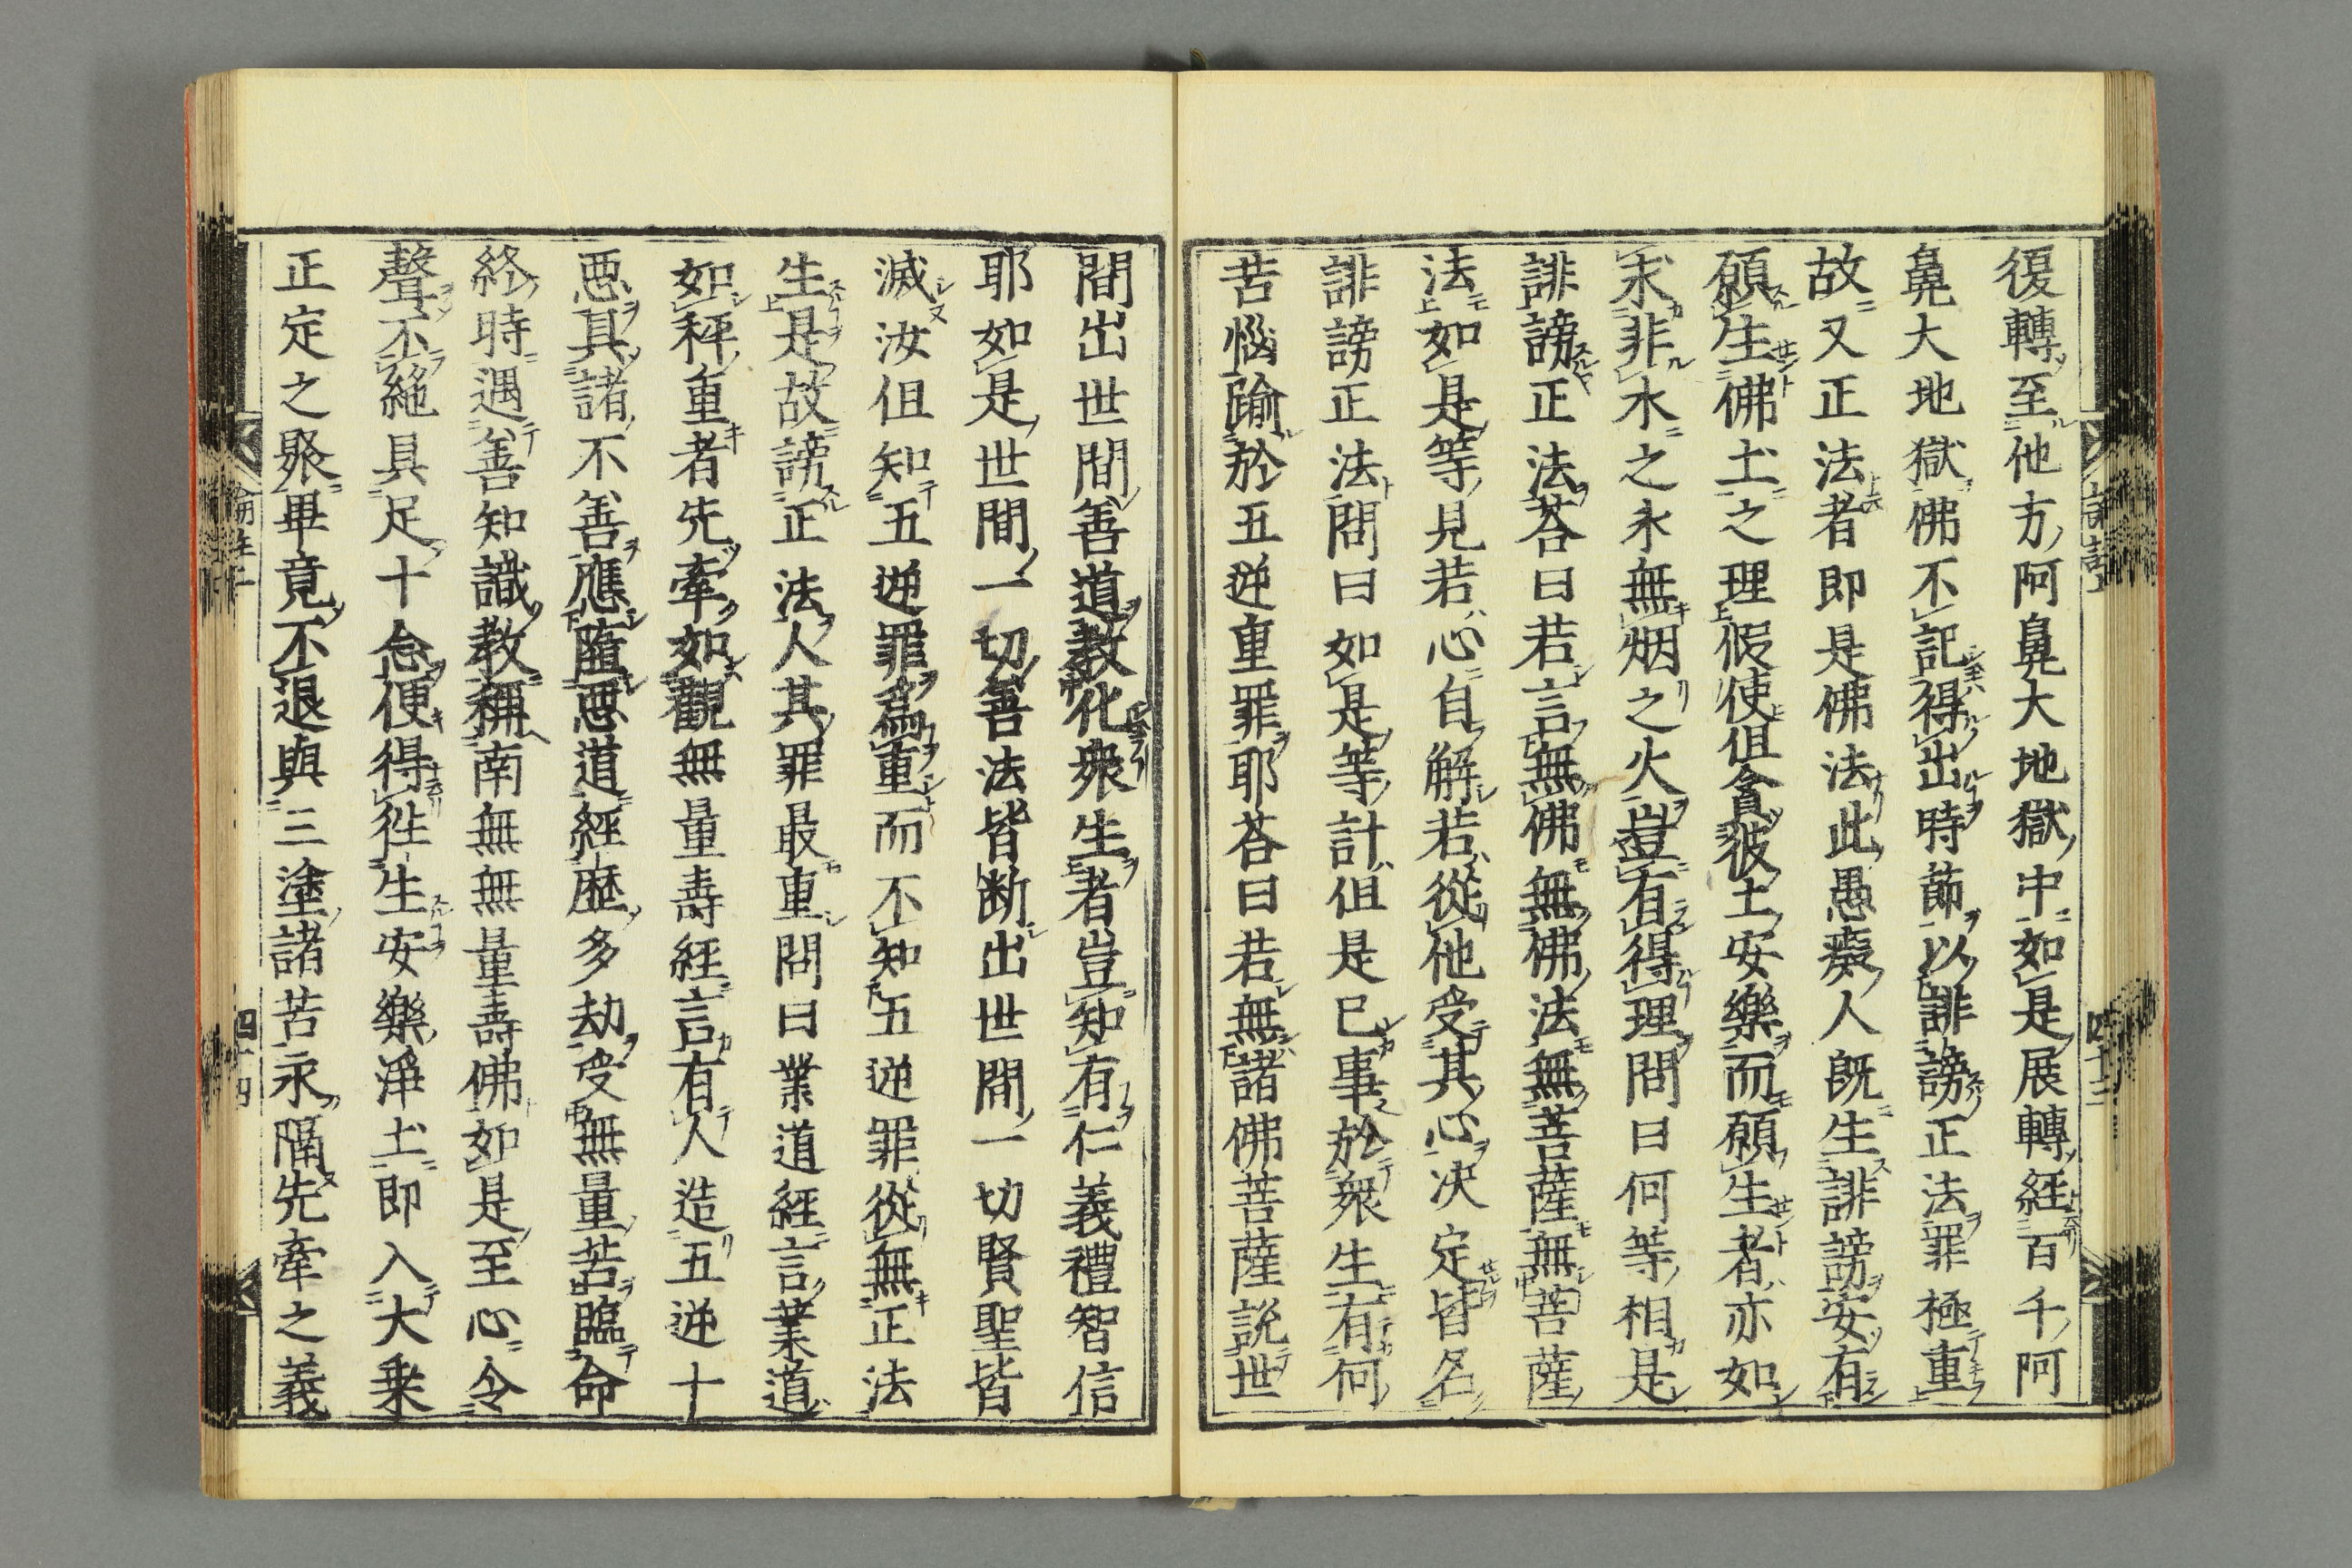 復轉至他方阿鼻大地獄中如是展轉經百千阿
鼻大地獄佛不記得出時節以誹謗正法罪極重
故又正法者即是佛法此愚癡人既生誹謗安有
願生佛土之理假使但貪彼土安樂而願生者亦如
求非水之氷無烟之火豈有得理問曰何等相是
誹謗正法荅曰若言無佛無佛法無菩薩無菩薩
法如是等見若心自解若從他受其心决定皆名
誹謗正法問曰如是等計但是已事於衆生有何
苦惱踰於五逆重罪耶荅曰若無諸佛菩薩説世
間出世間善道教化衆生者豈知有仁義禮智信
耶如是世間一切善法皆断出世間一切賢聖皆
滅汝但知五逆罪爲重而不知五逆罪從無正法
生是故謗正法人其罪最重問曰業道經言業道
如秤重者先牽如觀無量壽經言有人造五逆十
悪具諸不善應墮悪道經歴多劫受無量苦臨命
終時遇善知識教稱南無無量壽佛如是至心令
聲不絶具足十念便得徃生安樂淨土即入大乗
正定之聚畢竟不退與三塗諸苦永隔先牽之義
四十四